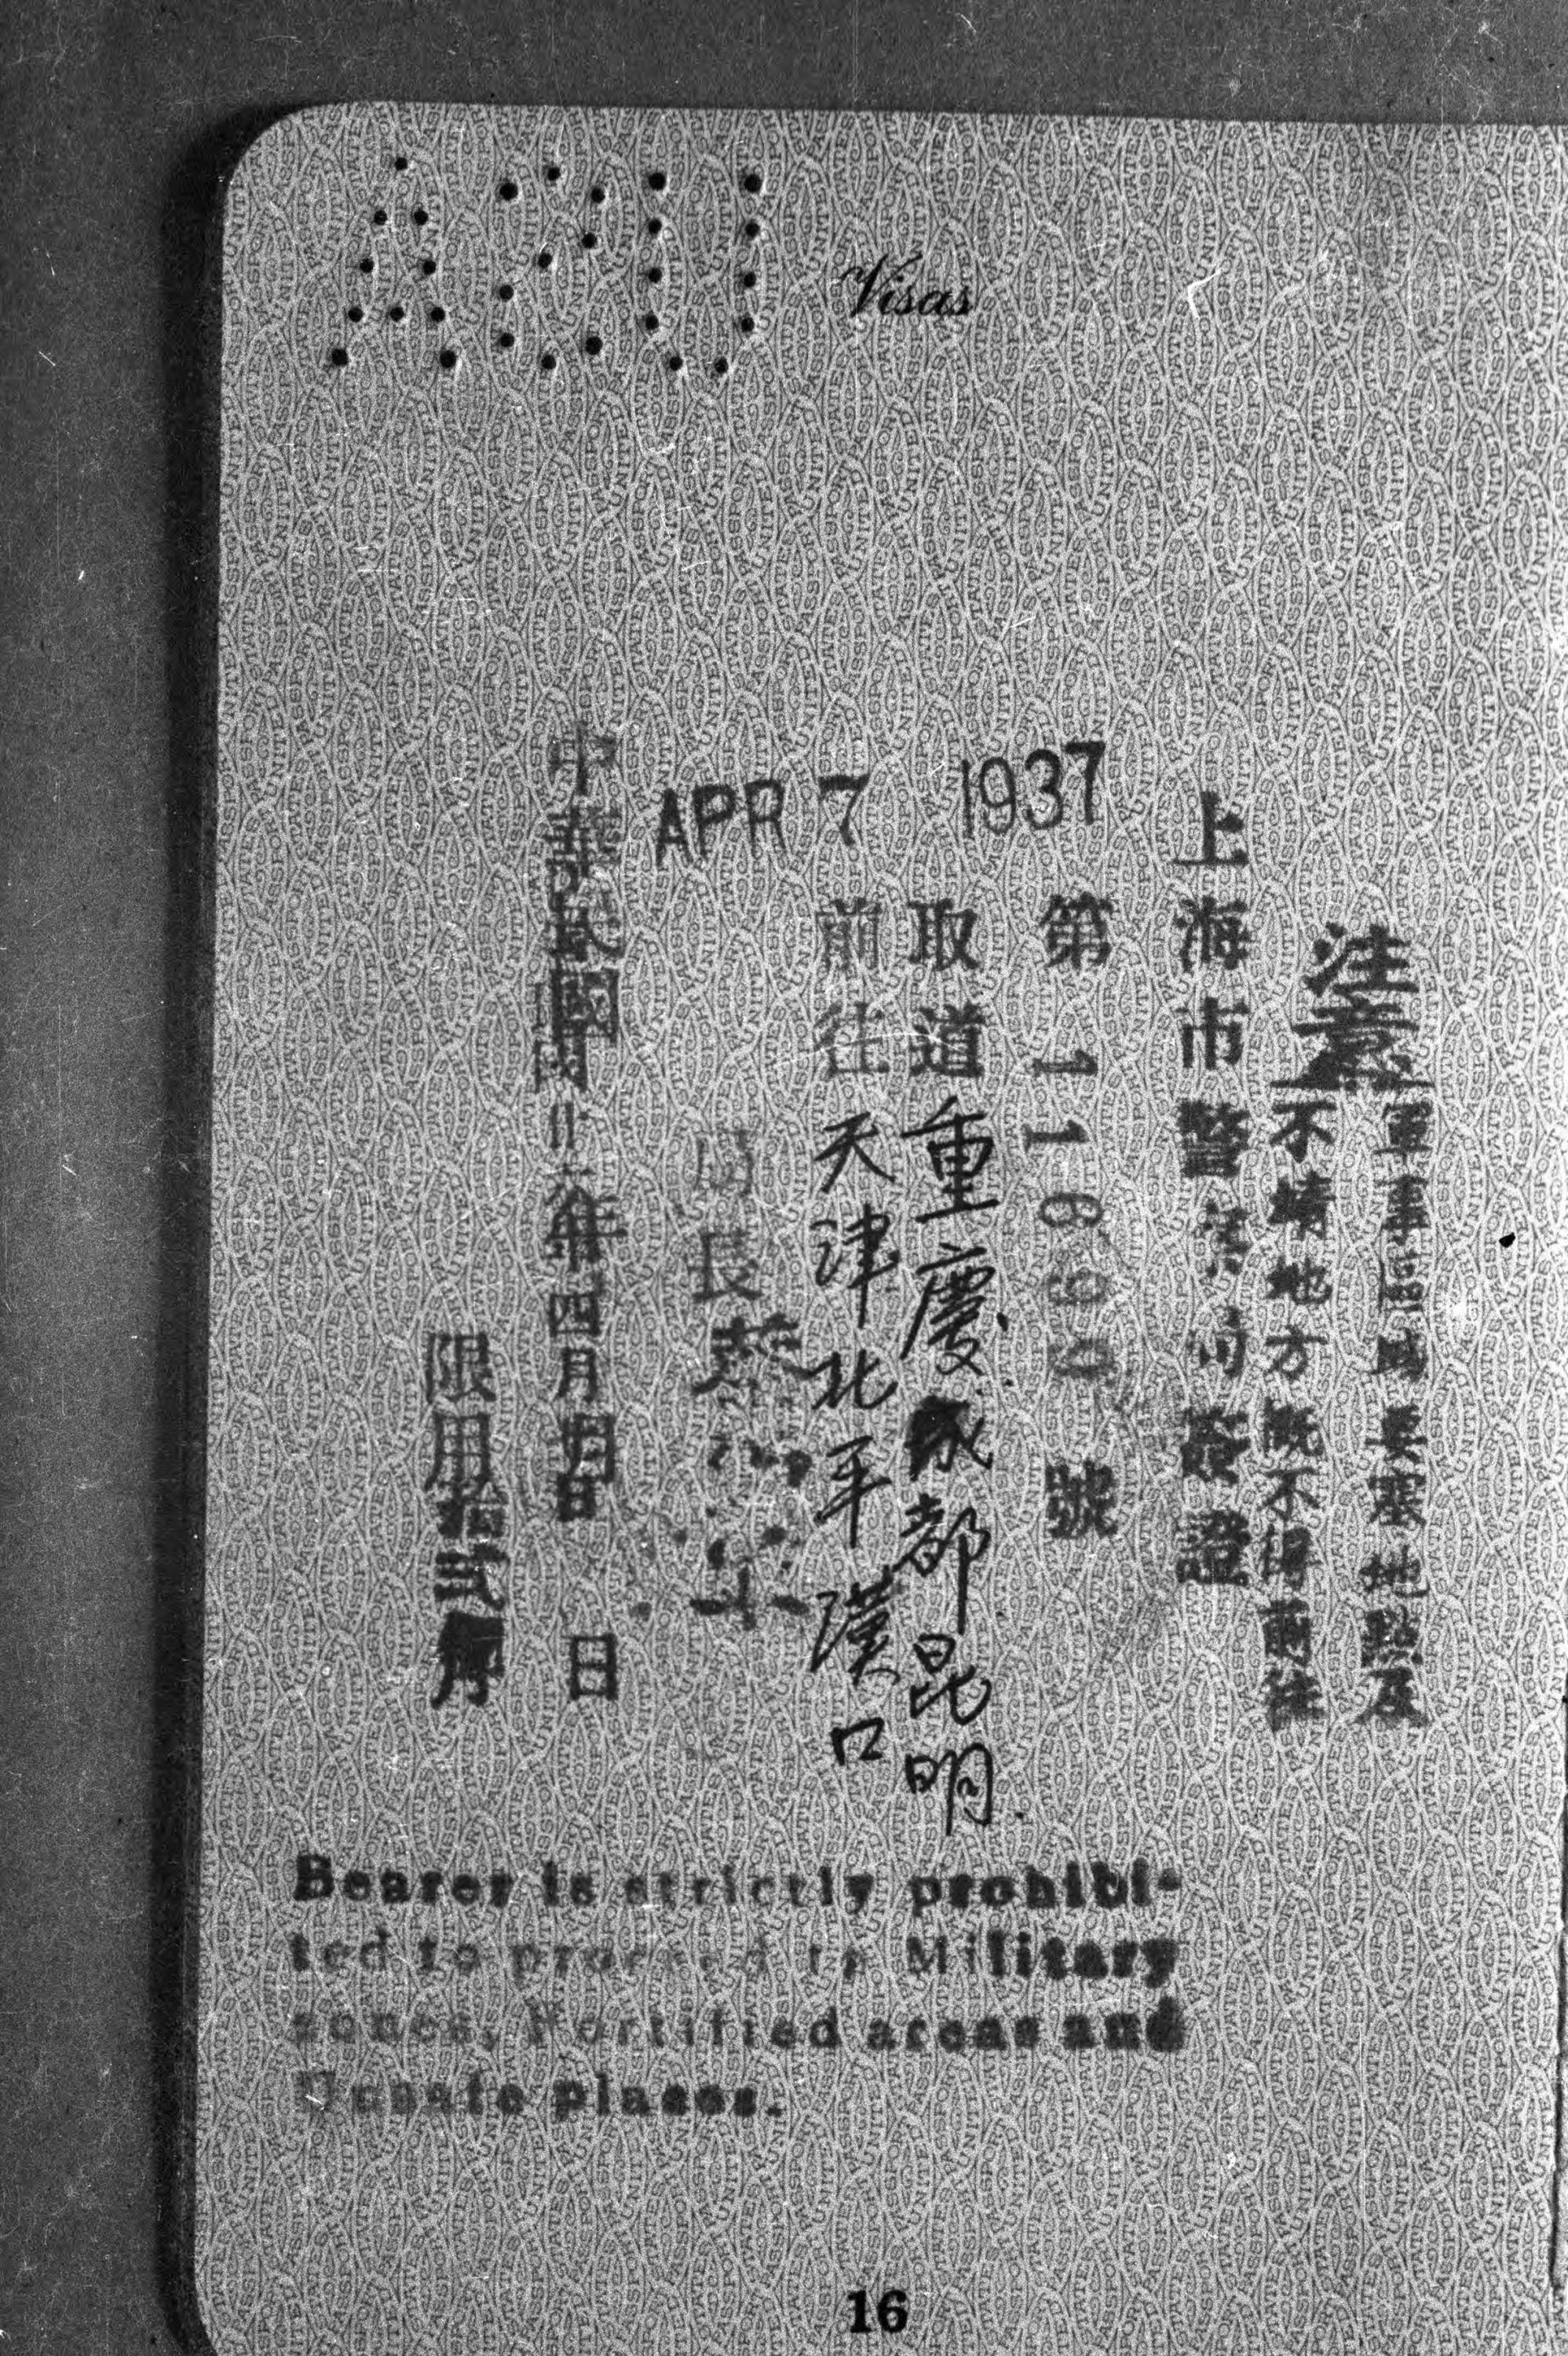 Visas
APR 7 1937
注意
軍事區域要塞地點及
不靖地方概不得前往
上海市警察局簽證
第 11690 號
取道重慶成都昆明
前往天津北平漢口
局長蔡
中華民國廿六年四月 日
限用拾弍個月
Bearer is strictly prohibi-
ted to proceed to Military
zones, Fortified areas and
Unsafe places.
16